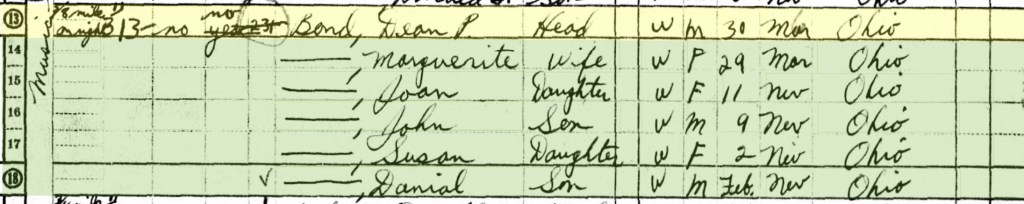 13 B13- no no Bond, Dean P. Head W M 30 Mar Ohio
14 ——, Marguerite Wife W F 29 Mar Ohio
15 ——, Joan Daughter W F 11 Nev Ohio
16 ——, John Son W M 9 Nev Ohio
17 ——, Susan Daughter W F 2 Nev Ohio
18 ✓ ——, Danial Son W M Feb. Nev Ohio